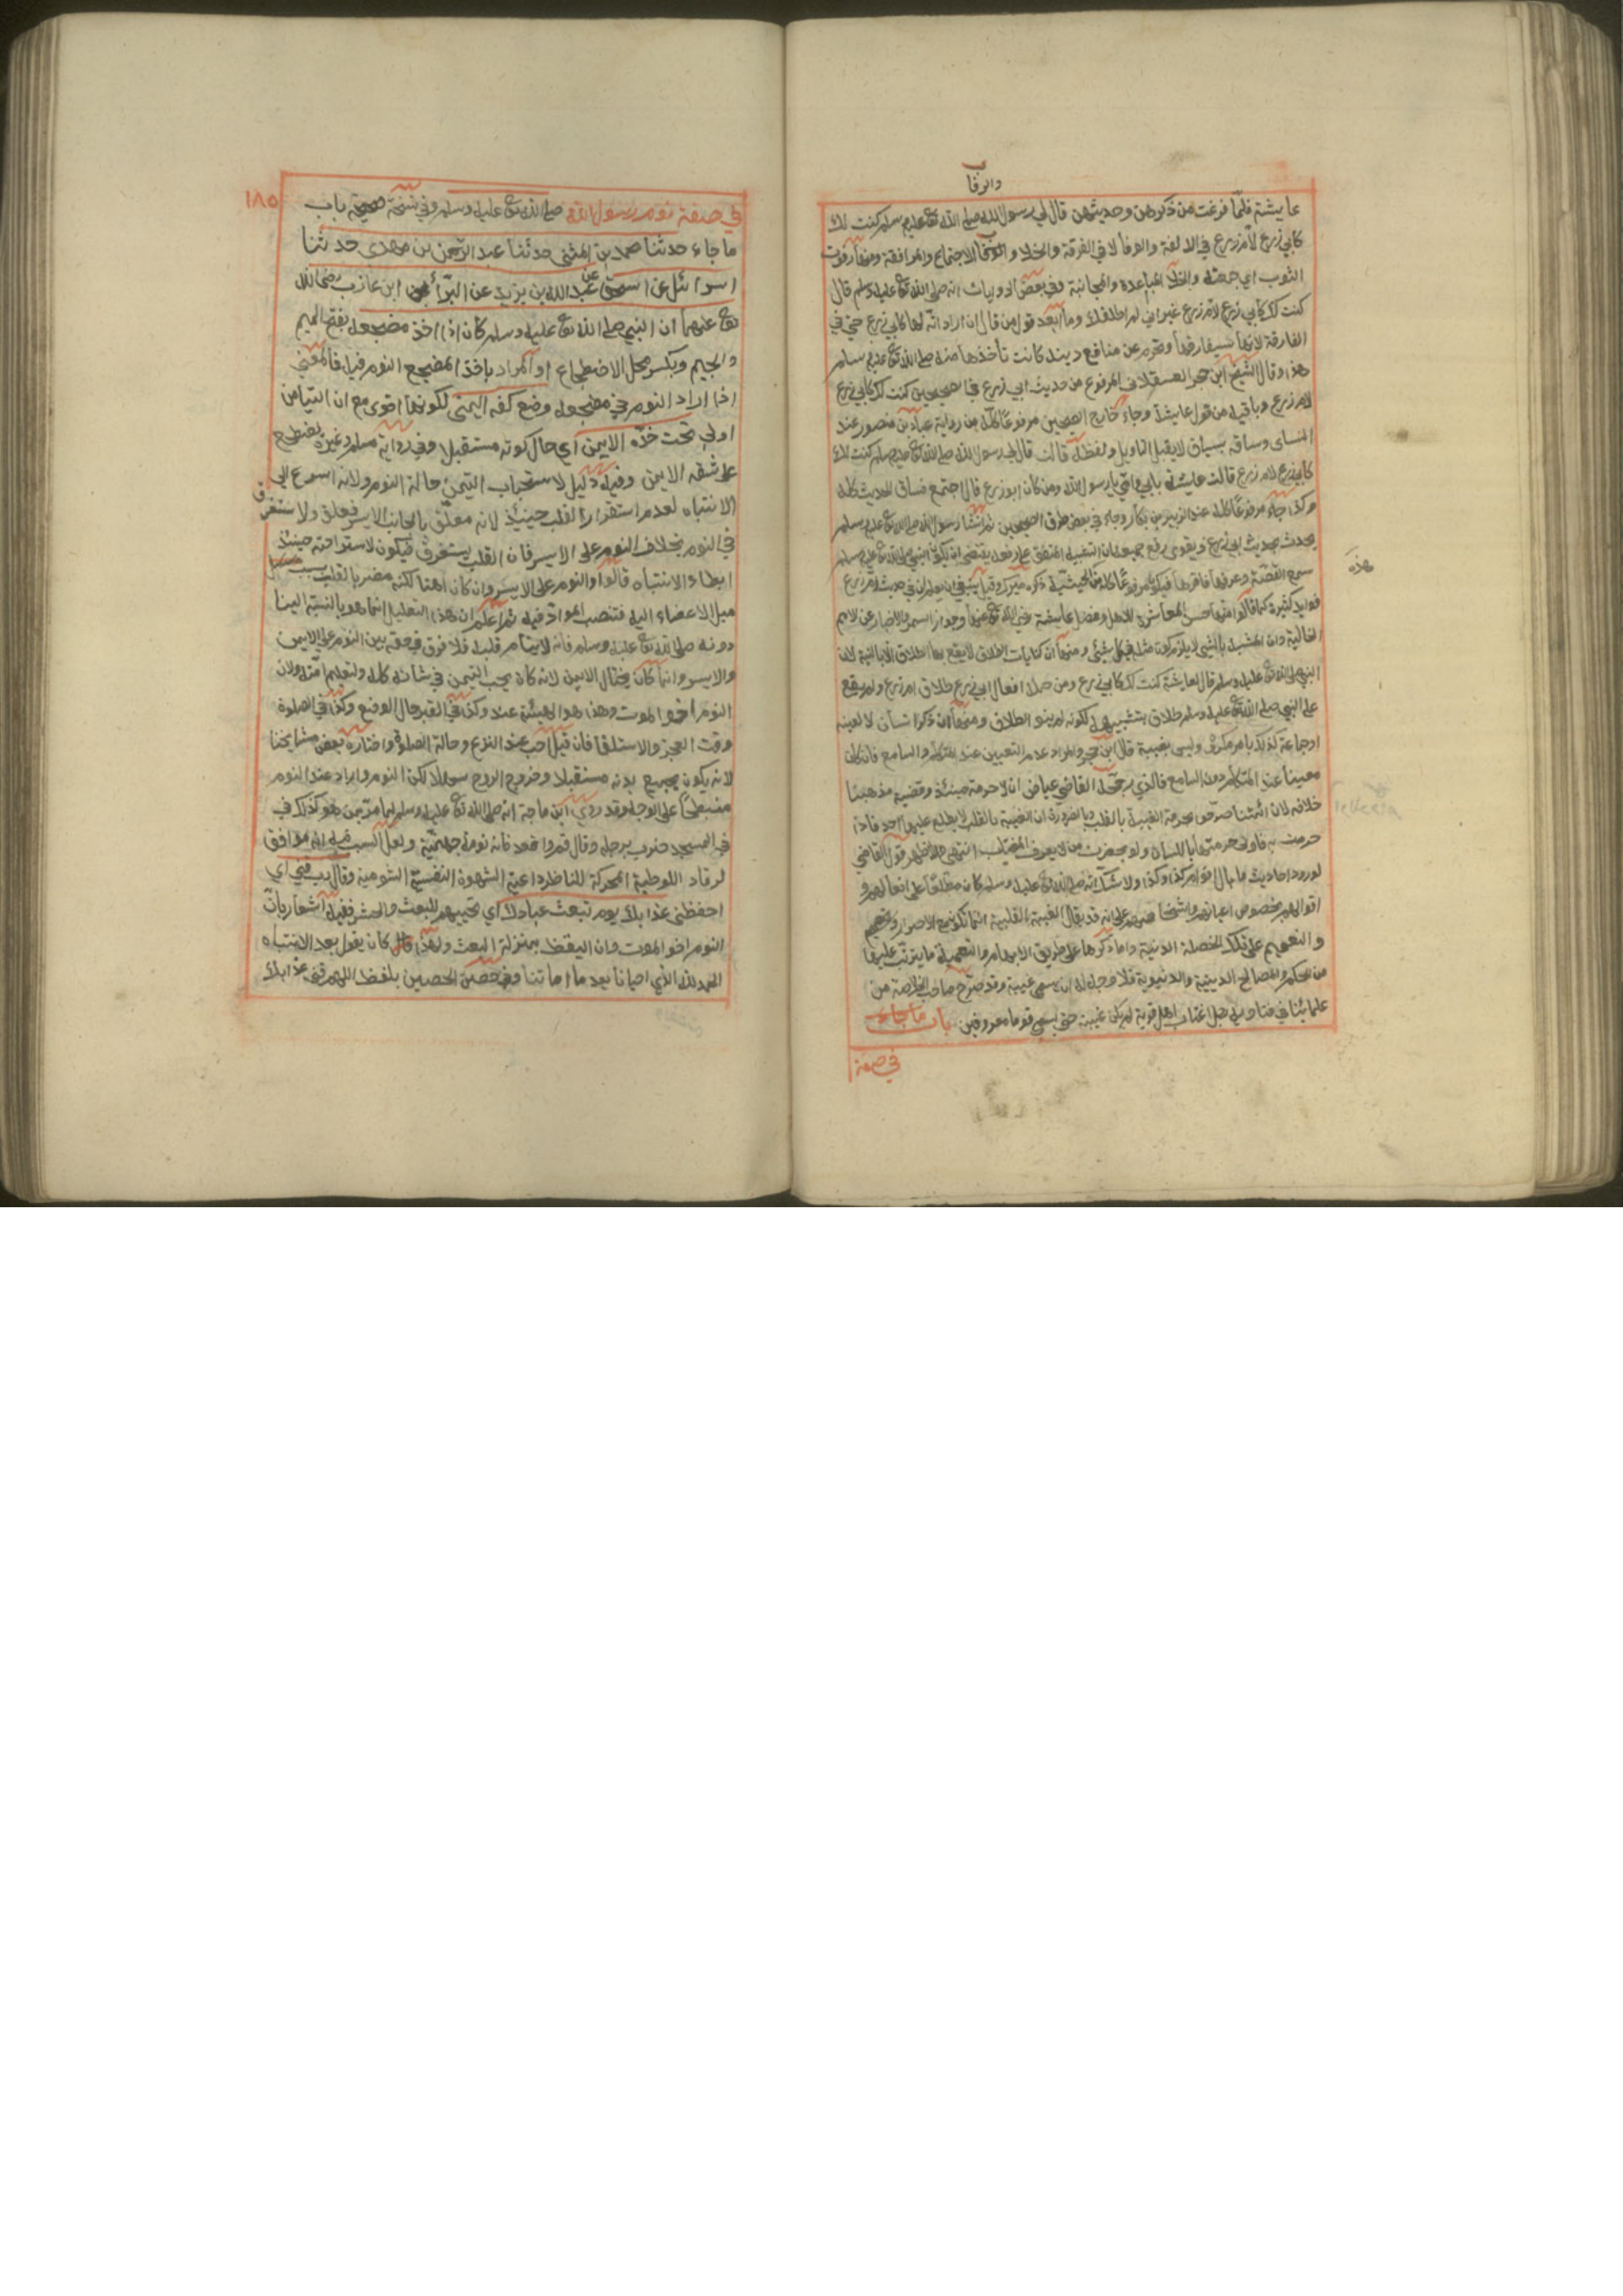 والوفا
عايشة فلما فرغت من ذكرهن وحديثهن قال لي رسول الله صلى الله تع عليه وسلم كنت لك
كابي زرع لام زرع في الالفة والوفا لا في الفرقة والخلا و الاجتماع والمرافقة ومنه رفوت
الثوب اي جمعته والخلا المباعدة والمجانبة وفي بعض الروايات انه صلى الله تع عليه وسلم قال
كنت لك كابي زرع لام زرع غير اني لم اطلقك وما ابعد قول من قال ان اراد انه لها كابي زرع حتى في
الفارقة لانها ستفارقه وتحرم عن منافع دينه كانت تأخذها منه صلى الله تع عليه وسلم
هذا وقال الشيخ ابن حجر العسقلاني المرفوع من حديث ابي زرع في الصحيحين كنت لك كابي زرع
لام زرع وباقيه من قول عايشة وجاء خارج الصحيحين مرفوعا كله من رواية عباد بن منصور عند
النساى وساقه بسياق لا يقبل التاويل ولفظه قالت قال لي رسول الله صلى الله تع عليه وسلم كنت لك
كابي زرع لام زرع قالت عايشة بابي وامي يا رسول الله ومن كان ابو زرع قال اجتمع فساق الحديث كله
وكذا جاء مرفوعا كله عند الزبير بن بكار وجاء في بعض طرق الصحيحين ثم انشأ رسول الله صلى الله تع عليه وسلم
يحدث بحديث ابي زرع ويقوى رفع جميعه ان التشبيه المتفق على رفعه يقتضى ان يكون النبي صلى الله تع عليه وسلم
سمع القصة وعرفها فاقرها فيكون مرفوعا كله من هذه الحيثية ذكره ميرك وقيل ينبغي ان يعلم ان في حديث ام زرع
هذه
فوايد كثيرة كما قالوا منها حسن المعاشرة للاهل وفضل عايشة رضي الله تع عنها وجواز السمر والاخبار عن الامم
الخالية وان المشبه بالشي لا يلزم كونه مثله في كل شيئ ومنها ان كنايات الطلاق لا يقع بها الطلاق الا بالنية لان
النبي صلى الله تع عليه وسلم قال لعايشة كنت لك كابي زرع ومن جملة افعال ابي زرع طلاق ام زرع ولم يقع
على النبي صلى الله تع عليه وسلم طلاق بتشبيهه لكونه لم ينو الطلاق ومنها ان ذكر انسان لا لعينه
او جماعة كذلك بامر مكروه وليس بغيبة قال ابن حجر والمراد عدم التعيين عند المتكلم والسامع فان كان
معينا عند المتكلم دون السامع فالذي رجحه القاضي عياض ان لا حرمة حينئذ وقضية مذهبنا
خلافه لان ائمتنا صرحوا بحرمة الغيبة بالقلب وبالضرورة ان الغيبة بالقلب لا يطلع عليها احد فاذا
حرمت به فاولى حرمتها باللسان ولو بحضرت من لا يعرف المغتاب انتهى والاظهر قول القاضي
لورود احاديث ما بال اقوام كذا وكذا ولا شك انه صلى الله تع عليه وسلم كان مطلعا على افعالهم و
اقوالهم بخصوص اعيانهم واشخاصهم على انه قد يقال الغيبة القلبية انما تكون مع الاصرار
والتصميم على تلك الخصلة الدنية واما ذكرها على طريق الابهام والتعمية لما يترتب عليها
من الحكم والمصالح الدينية والدنيوية فلا وجه له ان يسمى غيبة وقد صرح صاحب الخلاصة من
علمائنا في فتاويه رجل اغتاب اهل قرية لم يكن غيبة حتى يسمى قوما معروفين باب ما جاء
في صفة
١٨٥
في صفة نوم رسول الله صلى الله تع عليه وسلم وفي نسخة صحيحة باب
ما جاء حدثنا محمد بن المثنى حدثنا عبد الرحمن بن مهدى حدثنا
اسرائل عن اسحق عن عبد الله بن يزيد عن البرأ بن عازب رضي الله
تع عنهما ان النبي صلى الله تع عليه وسلم كان اذا اخذ مضجعه بفتح الميم
والجيم وبكسر محل الاضطجاع او المراد باخذ المضجع النوم فيه فالمعنى
اذا اراد النوم في مضجعه وضع كفه اليمنى لكونها اقوى مع ان التيامن
اولى تحت خده الايمن اي حال كونه مستقبلا وفي رواية مسلم وغيره يضطجع
على شقه الايمن وفيه دليل لاستحباب التيمن حالة النوم ولانه اسرع الى
الانتباه لعدم استقرار القلب حينئذ لانه معلق بالجانب الايسر فيعلق ولا يستغرق
في النوم بخلاف النوم على الايسر فان القلب يستغرق فيكون لاستراحته حينئذ
ابطاء الانتباه قالوا والنوم على الايسر وان كان اهنا لكنه مضر بالقلب بسبب
ميل الاعضاء اليه فتنصب المواد فيه ثم اعلم ان هذا التعليل انما هو بالنسبة الينا
دونه صلى الله تع عليه وسلم فانه لا ينام قلبه فلا فرق في حقه بين النوم على الايمن
والايسر وانما كان يختار الايمن لانه كان يحب التيمن في شانه كله ولتعليم امته ولان
النوم اخو الموت وهذا هو الهيئة عند وكذا في القبر حال الوضع وكذا في الصلوة
وقت العجز والاستلقا فان قيل احب عند النزع وحالة الصلوة واختاره بعض مشايخنا
لانه يكون بجميع بدنه مستقبلا وخروج الروح سهلا لكن النوم وايراد عند النوم
منبطحا على الوجه وقد روي ابن ماجة انه صلى الله تع عليه وسلم لما مر بمن هو كذلك في
في المسجد ضرب برجله وقال قم واقعد فانه نومة جهنمية ولعل السبب فيه انه موافق
لرقاد اللوطية المحركة للناظر داعية الشهوة النفسية الشومية وقال رب قني اي
احفظنى عذابك يوم تبعث عبادك اي تحييهم للبعث والحشر ففيه اشعار بان
النوم اخو الموت وان اليقظة بمنزلة البعث ولهذا كان يقول بعد الانتباه
الحمد لله الذي احيانا بعد ما اماتنا وفي حصن الحصين بلفظ اللهم قني عذابك